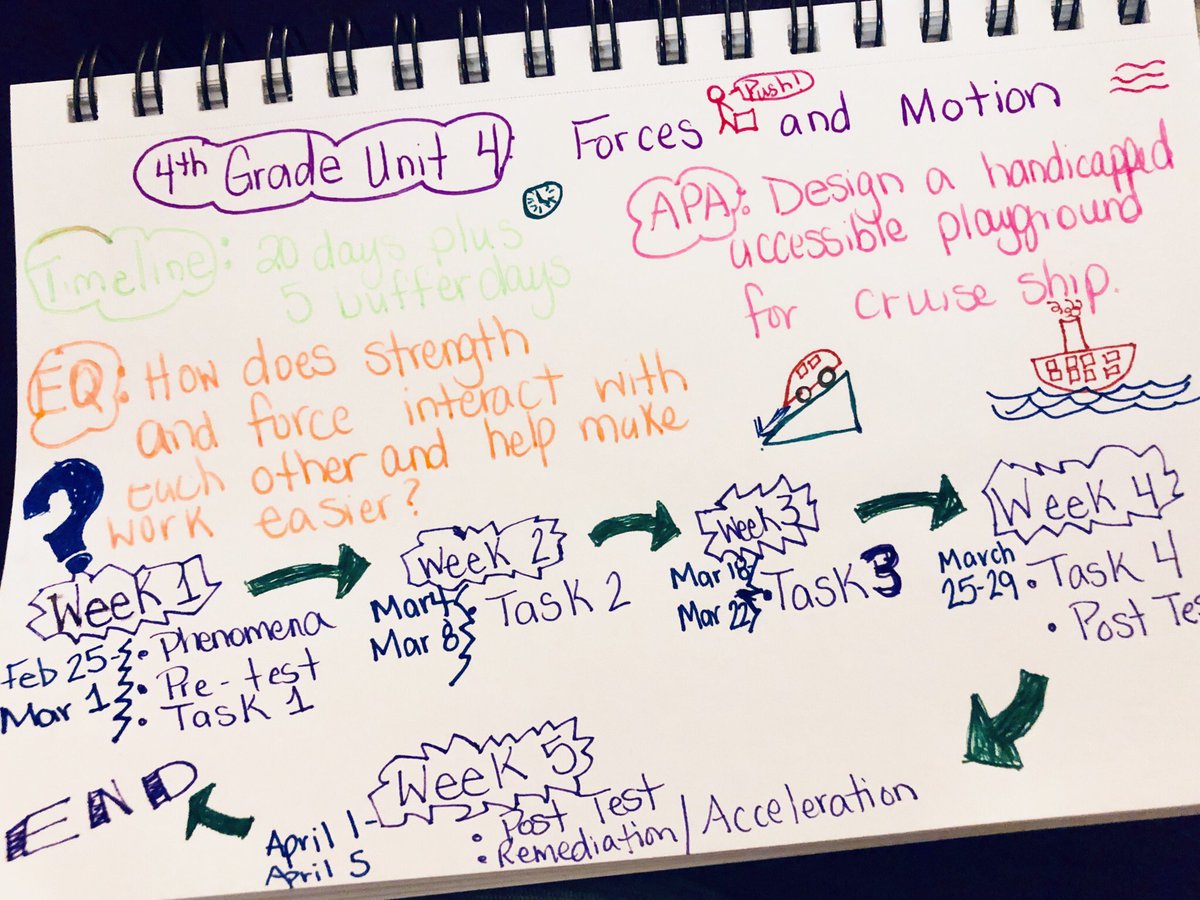 4th Grade Unit 4: Forces and Motion
Push!
Timeline: 20 days plus
5 buffer days
APA: Design a handicapped
accessible playground
for cruise ship.
EQ: How does strength
and force interact with
each other and help make
work easier?
Week 1
Feb 25-
Mar 1
• Phenomena
• Pre-test
• Task 1
Week 2
Mar 4
Mar 8
• Task 2
Week 3
Mar 18
Mar 22
• Task 3
Week 4
March
25-29
• Task 4
• Post Tes
Week 5
April 1-
April 5
• Post Test
• Remediation/Acceleration
END